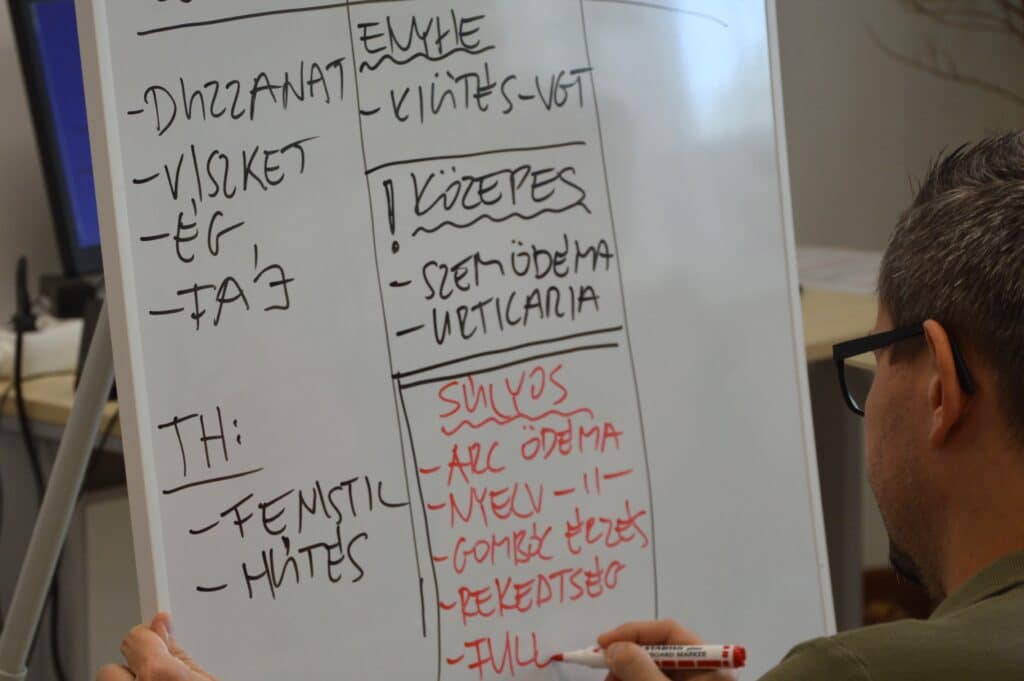 - DUZZANAT
- VISZKET
- ÉG
- FÁJ
TH:
- FENISTIL
- HŰTÉS
ENYHE
- KIÜTÉS-VGT
! KÖZEPES
- SZEM ÖDÉMA
- URTICARIA
SÚLYOS
- ARC ÖDÉMA
- NYELV -11-
- GOMBÓC ÉRZÉS
- REKEDTSÉG
- FULL
BOARD MARKER